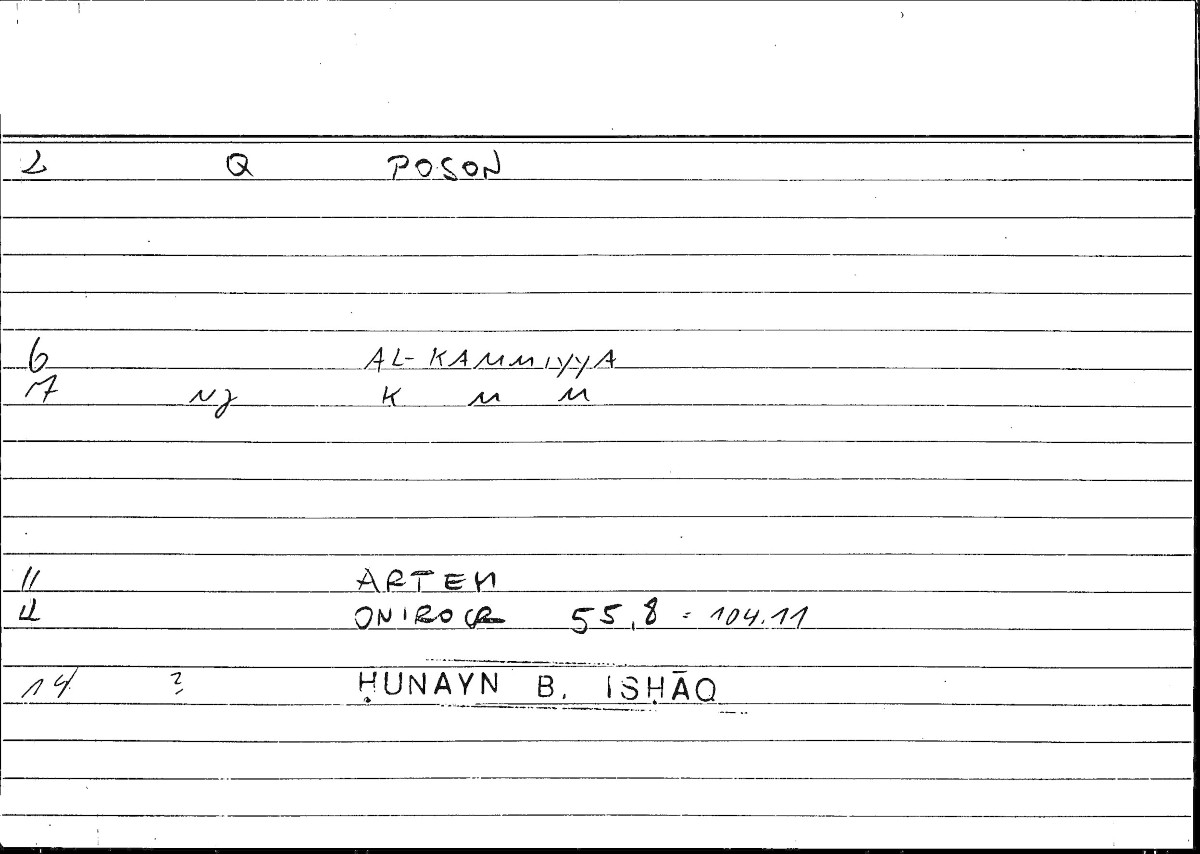 2 Q POSON
6 AL-KAMMIYYA
7 NJ K M M
11 ARTEM
12 ONIROCR 55,8 = 104.11
14 ? ḤUNAYN B. ISḤĀQ